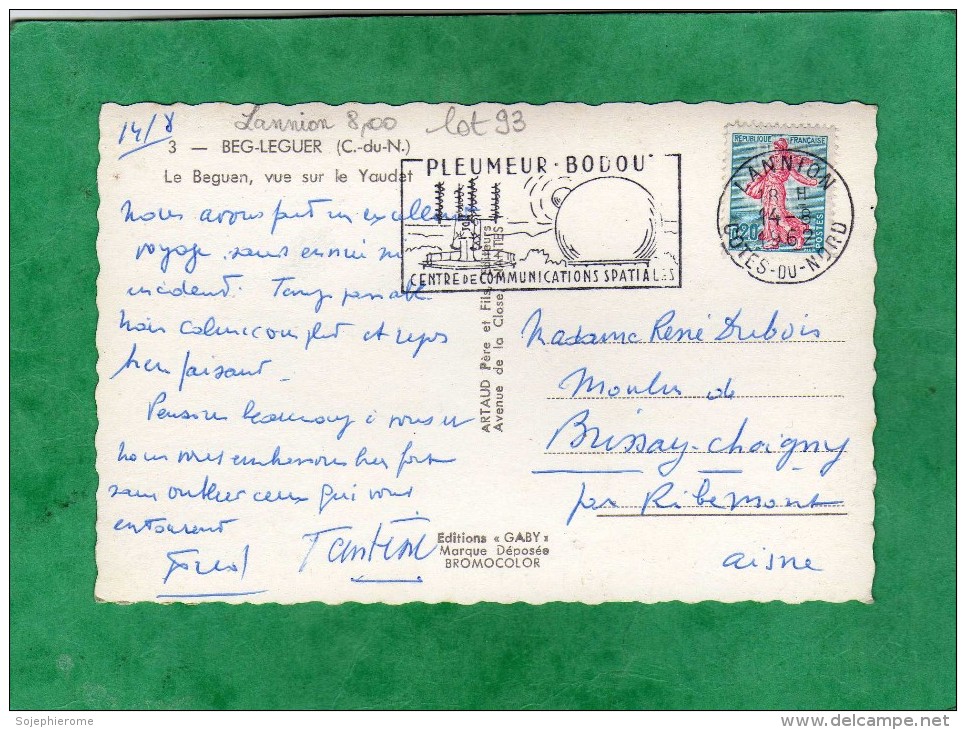 14/8
Lannion 8,00 lot 93
3 — BEG-LEGUER (C.-du-N.)
Le Beguen, vue sur le Yaudet
PLEUMEUR-BODOU
CENTRE DE COMMUNICATIONS SPATIALES
REPUBLIQUE FRANÇAISE
0,20
POSTES
LANNION
18 H
14-8
1962
COTES-DU-NORD
Nous avons fait un excellent
voyage sans ennui ni
incident. Temps passable
mais calme complet et repos
bien faisant.
Pensons beaucoup à vous et
nous vous embrassons bien fort
sans oublier ceux qui vous
entourent
Tantine
ARTAUD Père et Fils, Editeurs
Avenue de la Close, NANTES
Madame René Dubois
Moulin de
Brissay-Choigny
par Ribemont
Aisne
Editions « GABY »
Marque Déposée
BROMOCOLOR
Sojephierome
www.delcampe.net